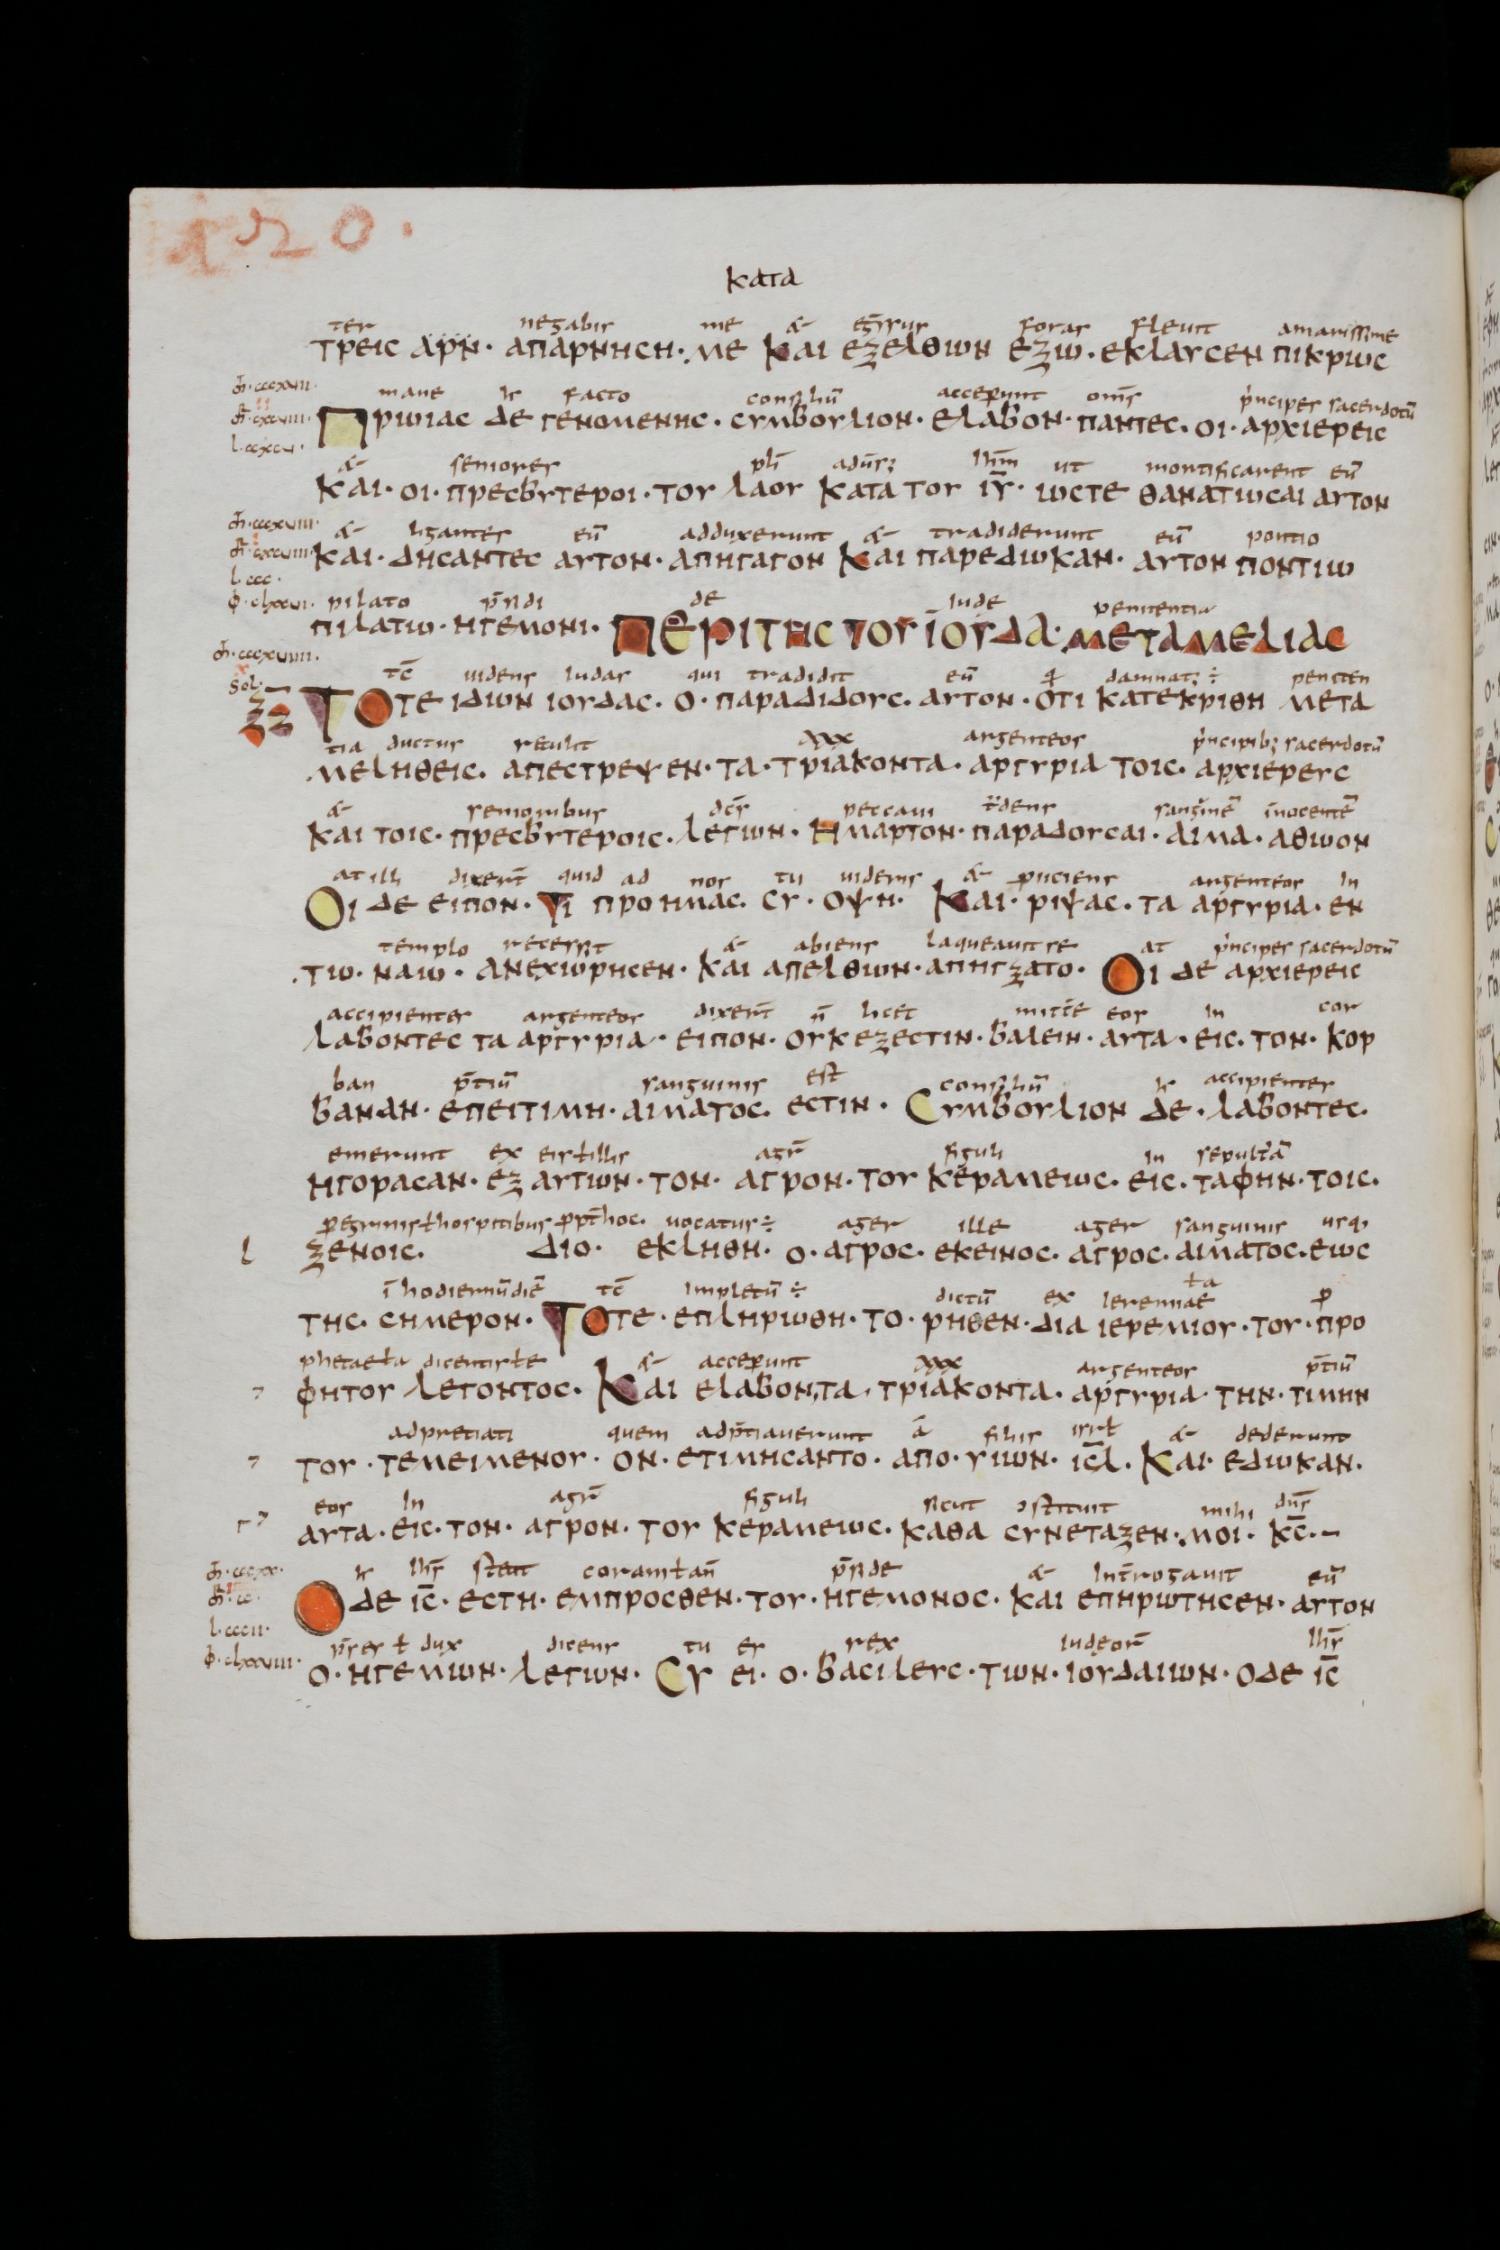 120.
κατα
ter negabis me & egrsus foras fleuit amarissime
τρεις αρν· απαρνηση· με και εξελθων εξω· εκλαυσεν πικρως
mane h facto consiliū acceperunt omīs prīncipes sacerdotū
Πρωιας δε γενομενης· συμβουλιον· ελαβον· παντες· οι· αρχιερεις
& seniores pli adūs; ihm ut mortificarent eū
και· οι· πρεσβυτεροι· του λαου κατα του ιυ̅· ωστε θανατωσαι αυτον
& ligantes eū adduxerunt & tradiderunt eū pontio
και· δησαντες αυτον· απηγαγον και παρεδωκαν· αυτον ποντιω
pilato p̄sidi de iude penitentia
πιλατω· ηγεμονι· Περι της του ιουδα· μεταμελιας
tc̄ uidens iudas qui tradidit eū damnat; ÷ peniten
Τοτε ιδων ιουδας· ο· παραδιδους· αυτον· οτι κατεκριθη μετα
tia ductus retulit xxx argenteos prīncipib; sacerdotū
μεληθεις· απεστρεψεν· τα· τριακοντα· αργυρια τοις· αρχιερευς
& senioribus dc̄s peccaui t̄dens sanguinē inocentē
και τοις· πρεσβυτεροις· λεγων· Ημαρτον· παραδουσαι· αιμα· αθωον
at illi dixer̄t quid ad nos tu uideris & piciens argenteos in
Οι δε ειπον· Τι προ ημας· συ· οψη· Και· ριψας· τα αργυρια· εν
templo recessit & abiens laqueauit se at prīncipes sacerdotū
τω· ναω· ανεχωρησεν· και απελθων· απηγξατο· Οι δε αρχιερεις
accipientes argenteos dixer̄t n̄ licet mitte eos in cor
λαβοντες τα αργυρια· ειπον· ουκ εξεστιν· βαλειν· αυτα· εις· τον· κορ
ban p̄tiū sanguinis est consiliū h accipientes
βαναν· επει τιμη· αιματος· εστιν· Συμβουλιον δε· λαβοντες·
emerunt ex eis ł illis agr̄ figuli in sepultr̄ā
ηγορασαν· εξ αυτων· τον· αγρον· του κεραμεως· εις· ταφην· τοις·
peregrinis ł hospitibus ppt̄ hoc· uocatus ÷ ager ille ager sanguinis usq;
ξενοις· διο· εκληθη· ο· αγρος· εκεινος· αγρος· αιματος· εως
ī hodiernū diē tc̄ impletū ÷ dictū ex ieremiae ła p
της· σημερον· Τοτε· επληρωθη· το· ρηθεν· δια ιερεμιου· του· προ
phetae ła dicentis ł te & acceperunt xxx argenteos p̄tiū
φητου λεγοντος· Και ελαβον· τα· τριακοντα· αργυρια· την· τιμην
adpretiati quem adp̄tiauerunt a filiis isrł & dederunt
του· τεμειμενου· ον· ετιμησαντο· απο· υιων· ιc̅λ· Και· εδωκαν·
eos in agr̄ figuli sicut ɔstituit mihi dn̄s
αυτα· εις· τον· αγρον· του κεραμεως· καθα συνεταξεν· μοι· κc̅·
h ihs̄ stetit coram ł añ p̄side & int̄rogauit eū
Ο δε ιc̅· εστη· εμπροσθεν· του· ηγεμονος· και επηρωτησεν· αυτον
p̄ses ł dux dicens tu es rex iudeor̄ ihs̄
ο· ηγεμων· λεγων· Συ ει· ο· βασιλευς· των· ιουδαιων· ο δε ιc̅